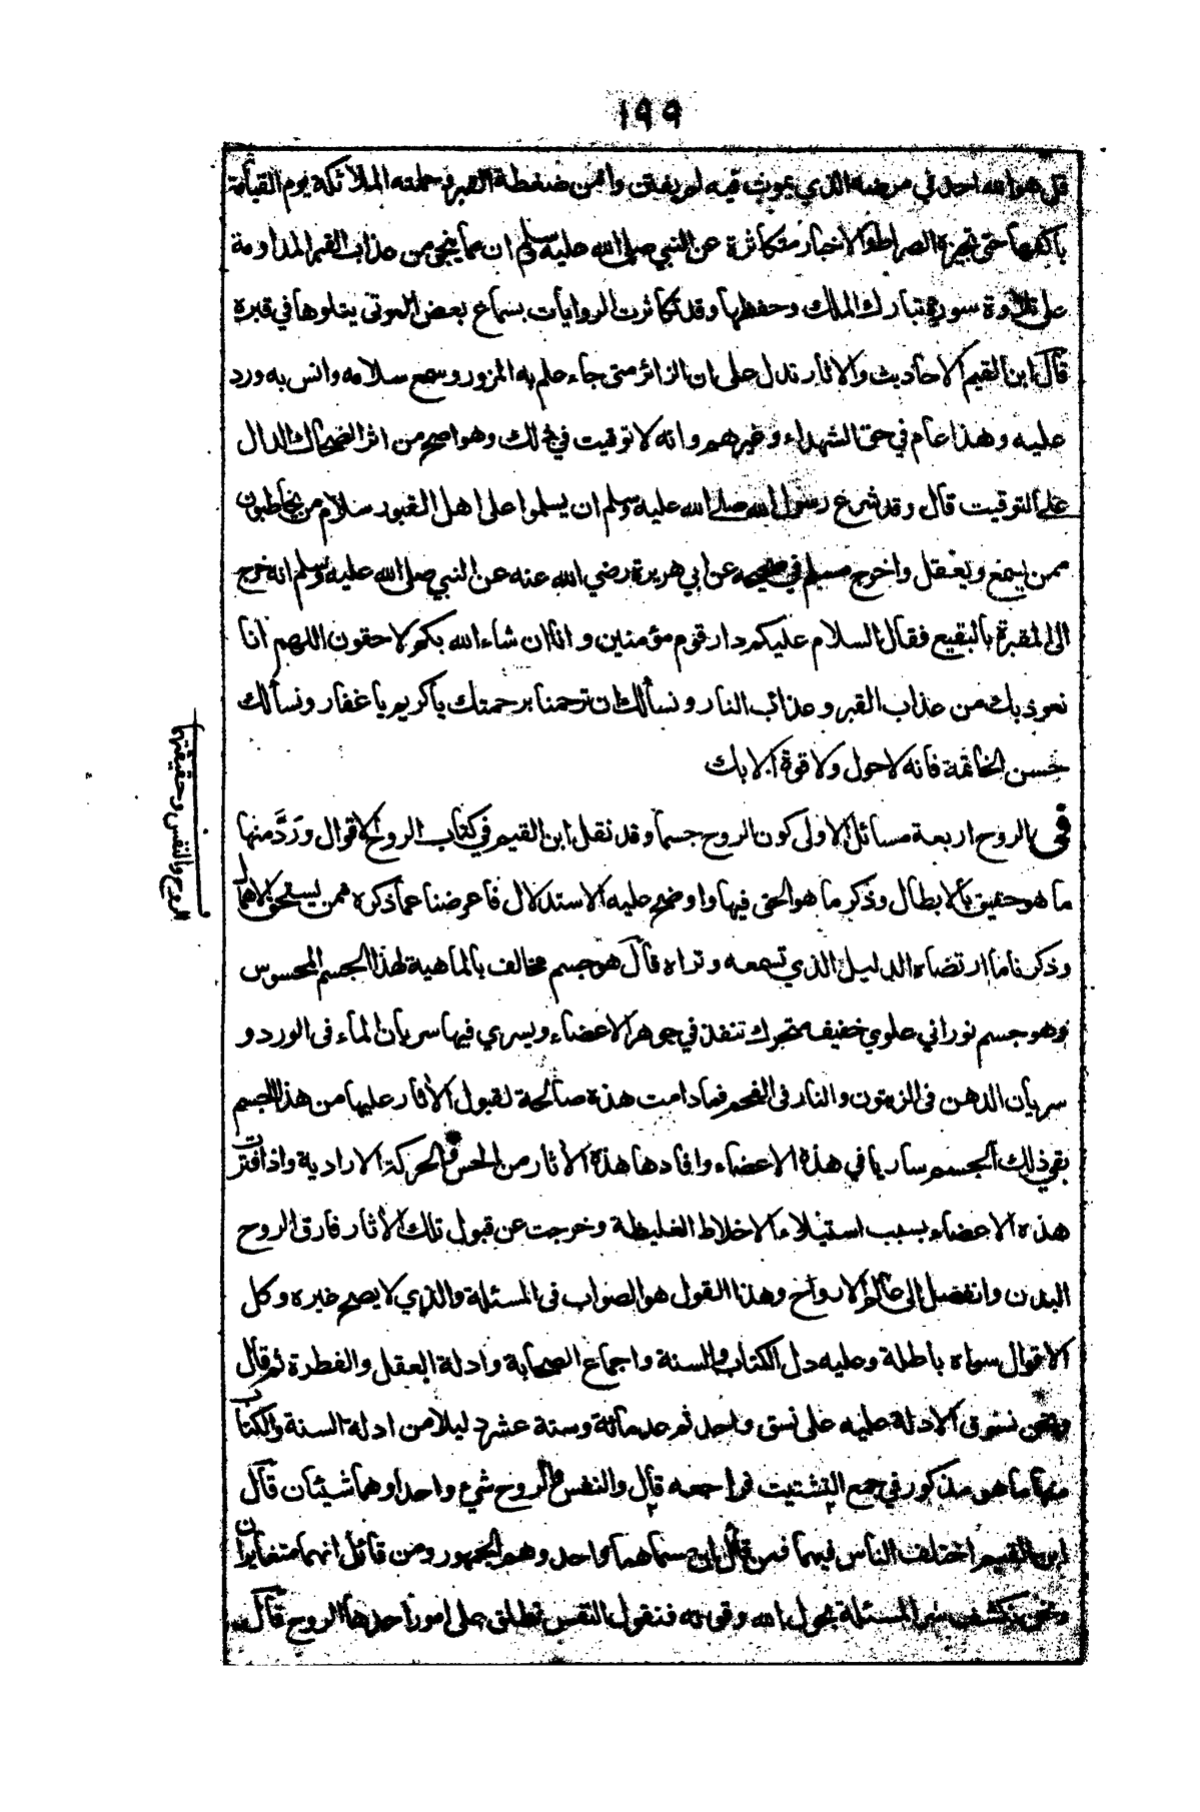 ١٩٩
قل هو الله احد في مرضه الذي يموت فيه لم يفتن وامن ضغطة القبر وحملته الملائكة يوم القيامة
باكفها حتى تجيزه الصراط والاخبار متكاثرة عن النبي صلى الله عليه وسلم ان مما ينجي من عذاب القبر المداومة
على تلاوة سورة تبارك الملك وحفظها وقد تكاثرت الروايات بسماع بعض الموتى يتلوها في قبره
قال ابن القيم الاحاديث والاثار تدل على ان الزائر متى جاء علم به المزور وسمع سلامه وانس به ورد
عليه وهذا عام في حق الشهداء وغيرهم وانه لا توقيت في ذلك وهو اصح من اثر الضحاك الدال
على التوقيت قال وقد شرع رسول الله صلى الله عليه وسلم ان يسلموا على اهل القبور سلام من يخاطبون
ممن يسمع ويعقل واخرج مسلم في صحيحه عن ابي هريرة رضي الله عنه عن النبي صلى الله عليه وسلم انه خرج
الى المقبرة بالبقيع فقال السلام عليكم دار قوم مؤمنين وانا ان شاء الله بكم لاحقون اللهم انا
نعوذ بك من عذاب القبر وعذاب النار ونسألك ان ترحمنا برحمتك يا كريم يا غفار ونسألك
حسن الخاتمة فانه لا حول ولا قوة الا بك
الروح والنفس وحقيقتها
في الروح اربعة مسائل الاولى كون الروح جسما وقد نقل ابن القيم في كتاب الروح الاقوال ورَدَّ منها
ما هو حقيق بالابطال وذكر ما هو الحق فيها واوضح عليه الاستدلال فاعرضنا عما ذكره ممن يستحق الاهمال
وذكرنا ما ارتضاه الدليل الذي تسمعه وتراه قال هو جسم مخالف بالماهية لهذا الجسم المحسوس
وهو جسم نوراني علوي خفيف متحرك تنفذ في جوهر الاعضاء ويسري فيها سريان الماء في الورد و
سريان الدهن في الزيتون والنار في الفحم فما دامت هذه صالحة لقبول الاثار عليها من هذا الجسم
بقي ذلك الجسم ساريا في هذه الاعضاء وافادها هذه الاثار من الحس والحركة الارادية واذا فترت
هذه الاعضاء بسبب استيلاء الاخلاط الغليظة وخرجت عن قبول تلك الاثار فارق الروح
البدن وانفصل الى عالم الارواح وهذا القول هو الصواب في المسئلة والذي لا يصح غيره وكل
الاقوال سواه باطلة وعليه دل الكتاب والسنة واجماع الصحابة وادلة العقل والفطرة ثم قال
ونحن نسوق الادلة عليه على نسق واحد ثم عد مائة وستة عشر دليلا من ادلة السنة والكتاب
منها ما هو مذكور في جمع التشتيت فراجعه قال والنفس والروح شيء واحد او هما شيئان قال
ابن القيم اختلف الناس فيهما فمن قائل ان مسماهما واحد وهم الجمهور ومن قائل انهما متغايران
ونحن نكشف سر المسئلة بحول الله وقوته فنقول النفس تطلق على امور احدها الروح قال